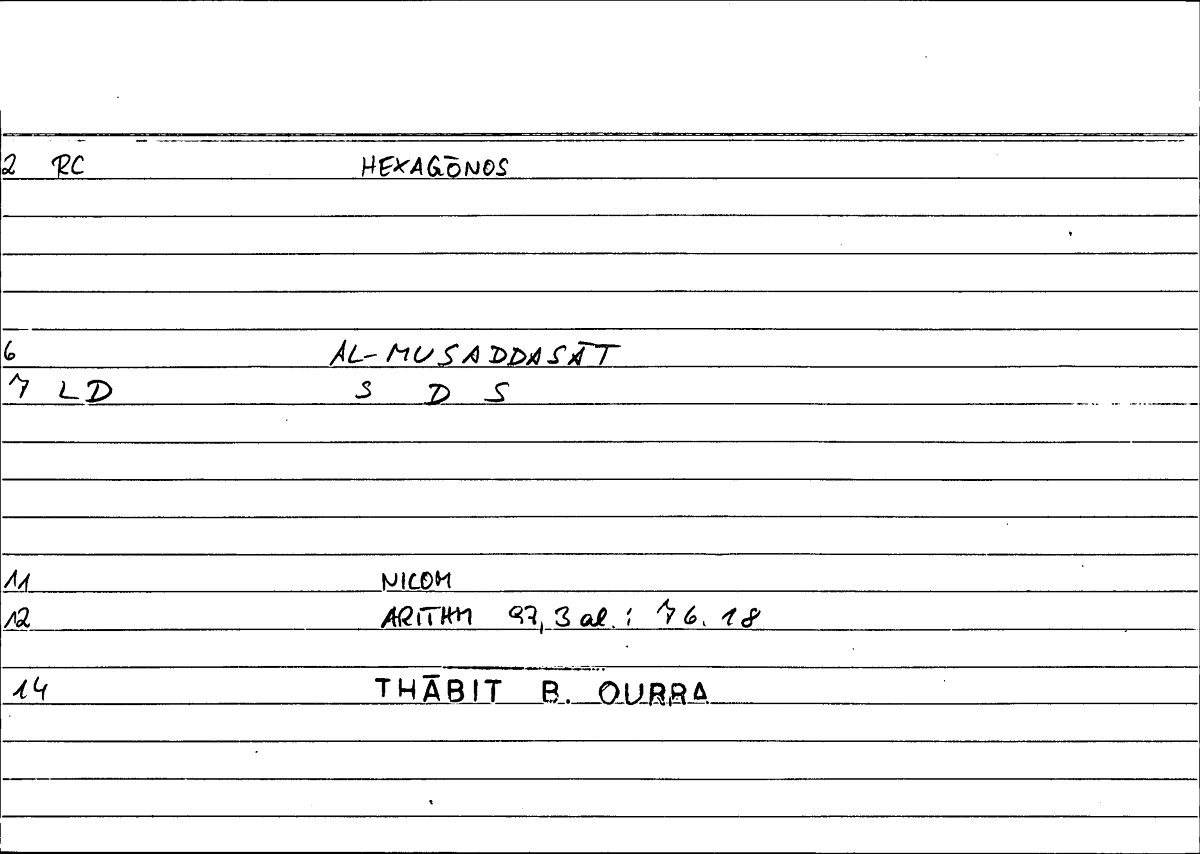 2 RC HEXAGŌNOS
6 AL-MUSADDASĀT
7 LD S D S
11 NICOM
12 ARITHM 97,3 al. : 76.18
14 THĀBIT B. QURRA